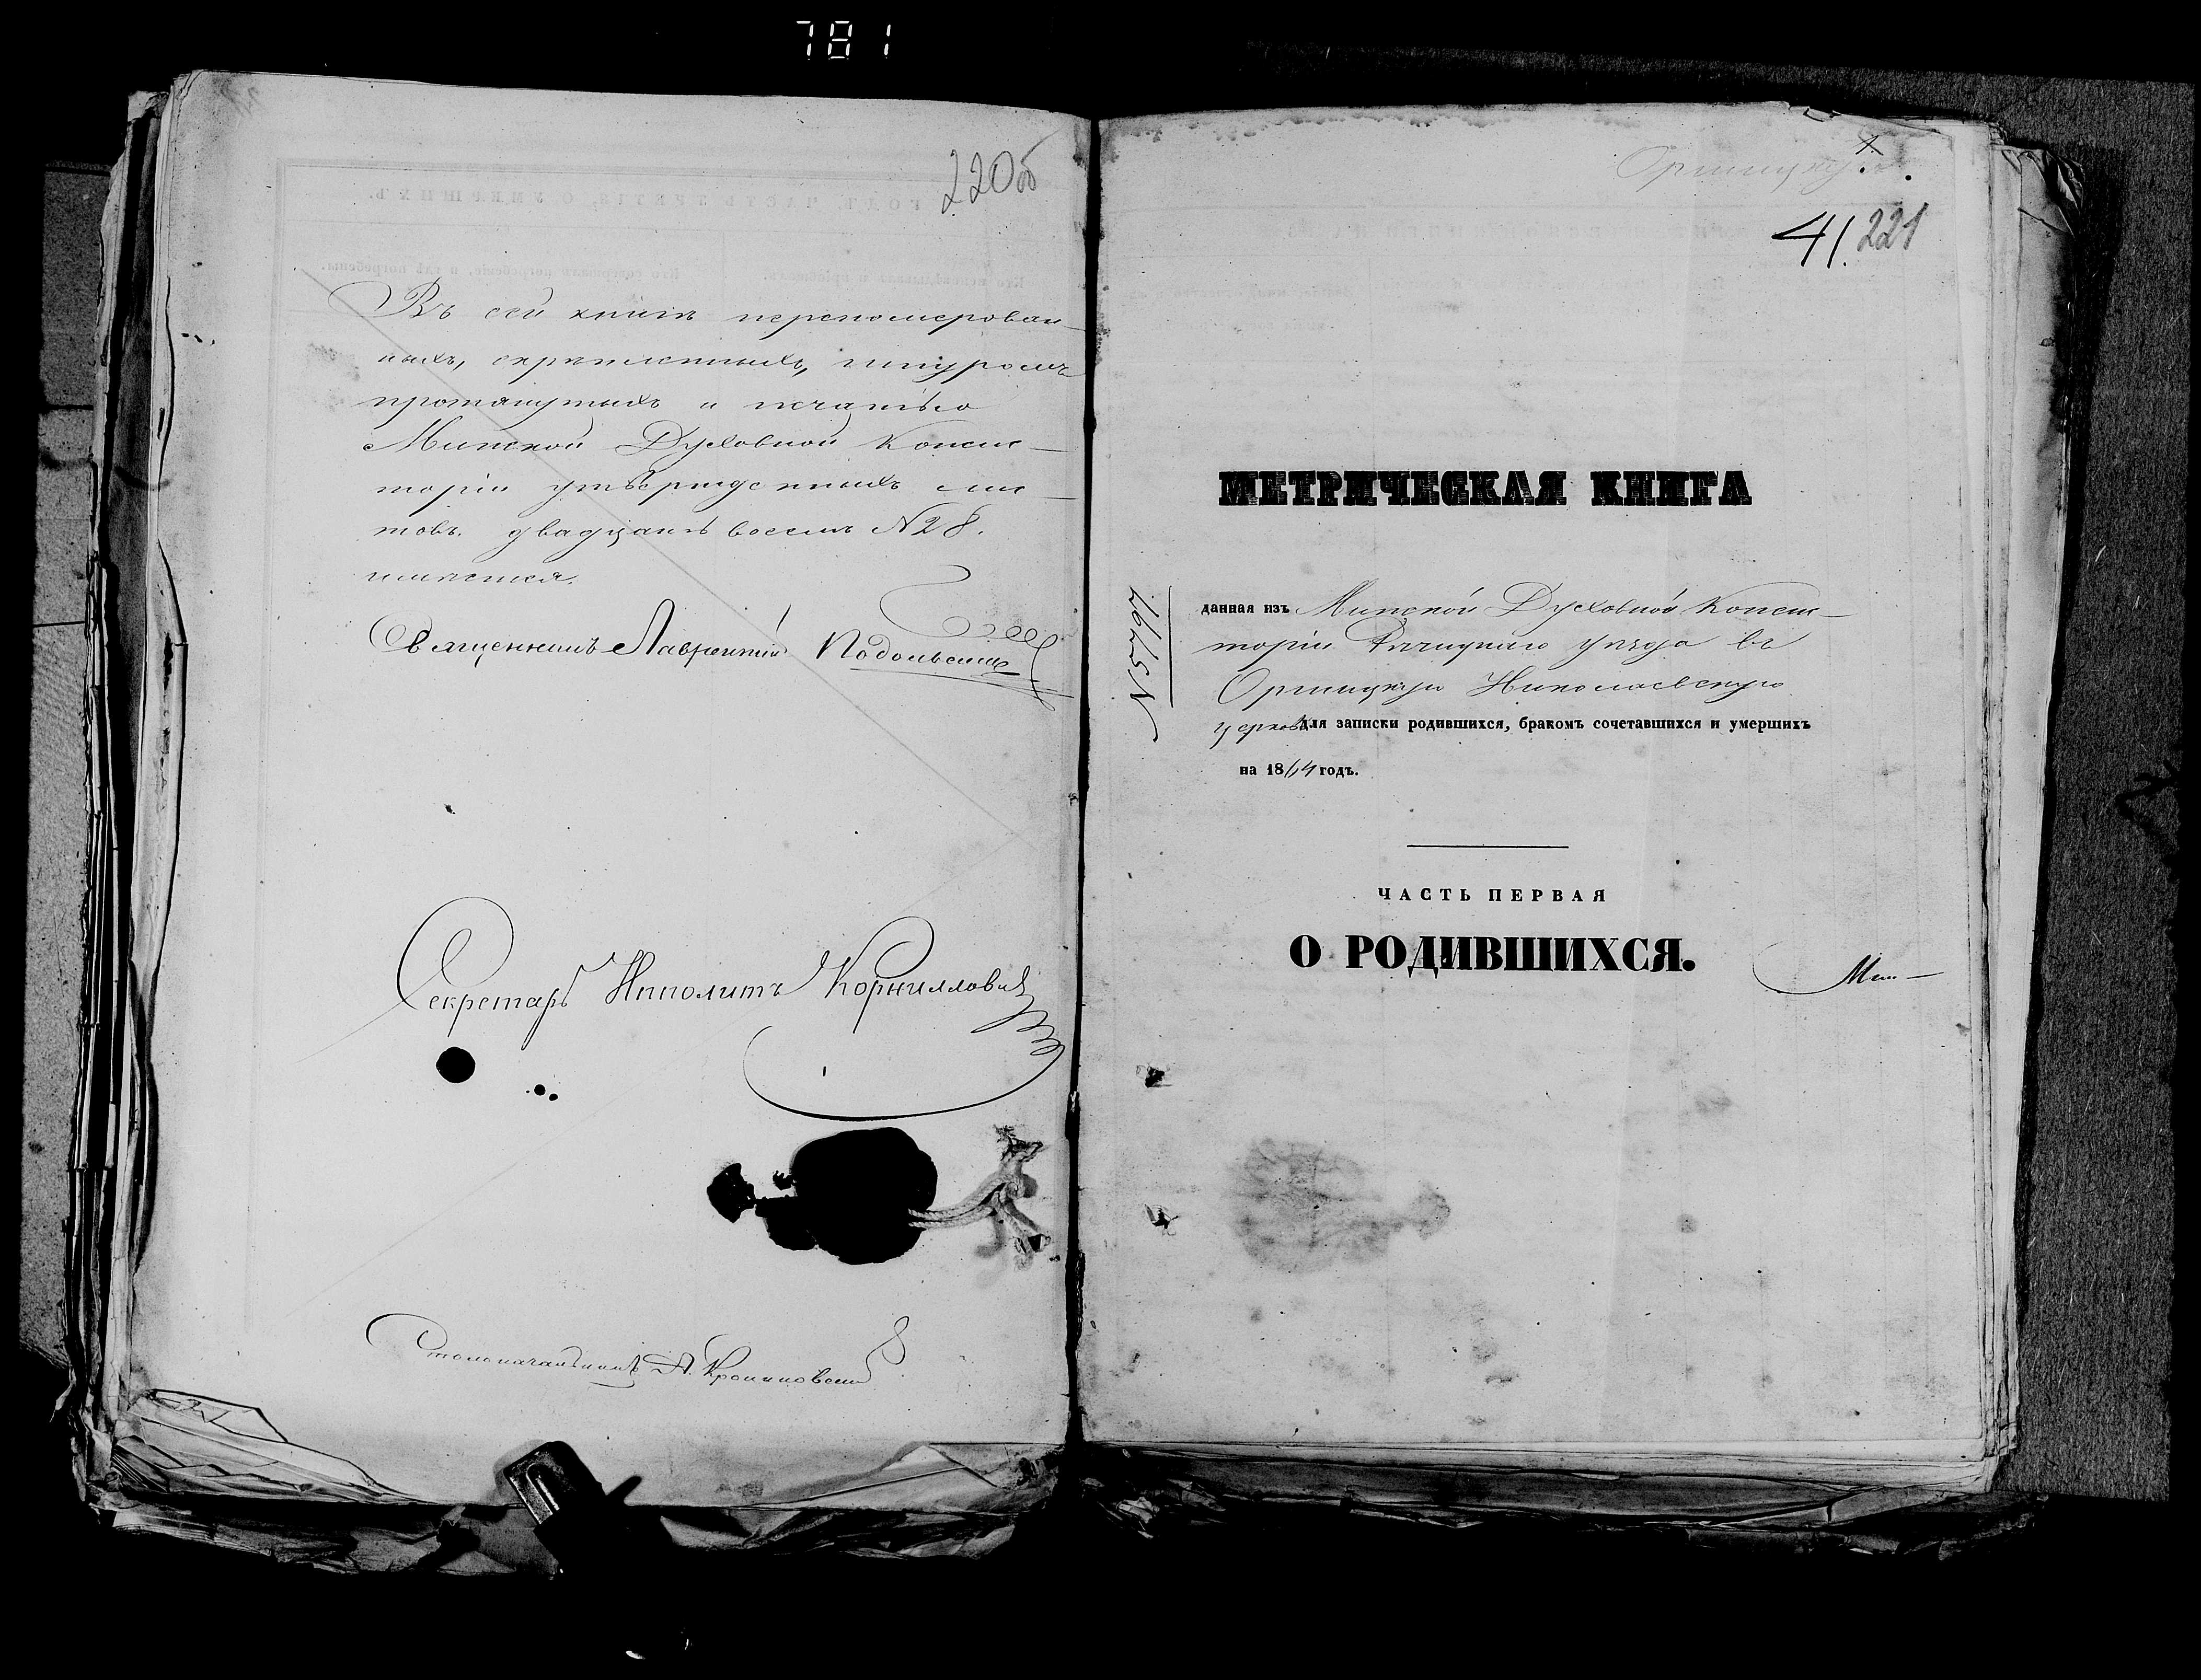 781
220об
Въ сей книгѣ перенумерован-
ныхъ, скрѣпленныхъ, шнуромъ
протянутыхъ и печатью
Минской Духовной Конси-
торіи утвержденныхъ лис-
товъ двадцать восемь N 28.
имѣется.
Священникъ Лаврентій Подольскій
Секретарь Ипполитъ Корниллович
Столоначальникъ А.
41. 221
МЕТРИЧЕСКАЯ КНИГА
данная изъ Минской Духовной Консис-
торіи Рѣчицкаго уѣзда въ
Николаевскую
церковь для записки родившихся, бракомъ сочетавшихся и умершихъ
на 1864 годъ.
ЧАСТЬ ПЕРВАЯ
О РОДИВШИХСЯ.
Мин-